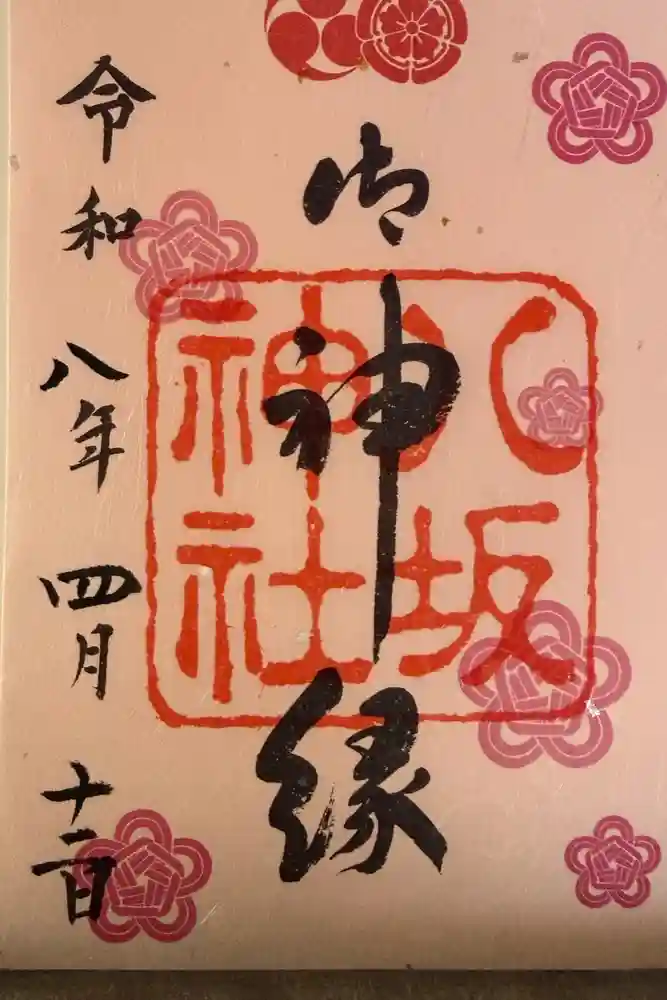 御神縁
八坂神社
令和八年四月十二日